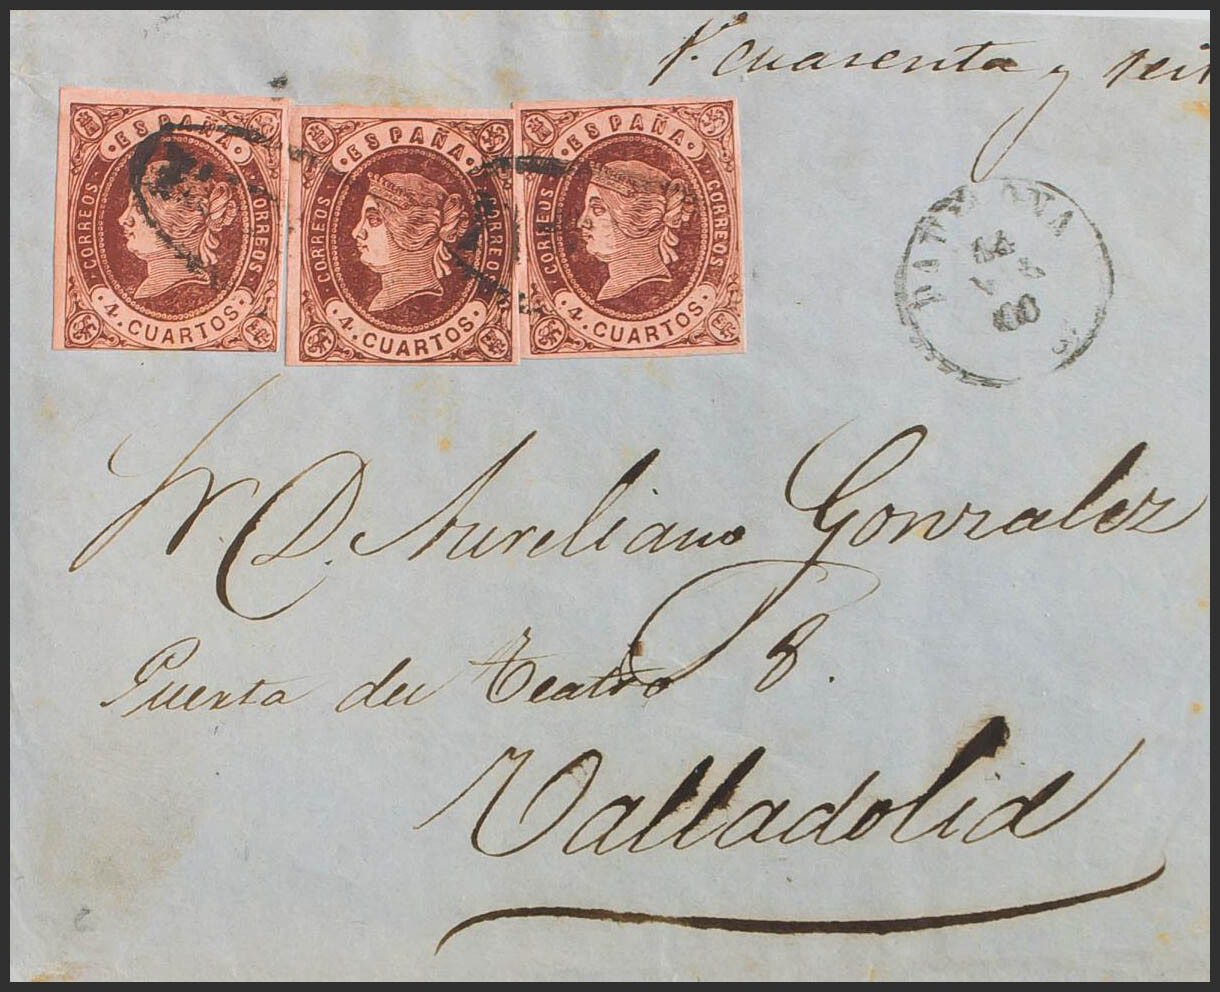 P. cuarenta y seis
ESPAÑA CORREOS CORREOS 4. CUARTOS.
ESPAÑA CORREOS CORREOS 4. CUARTOS.
ESPAÑA CORREOS CORREOS 4. CUARTOS.
Sr. D. Aureliano Gonzalez
Puerta del Teatro 8.
Valladolid